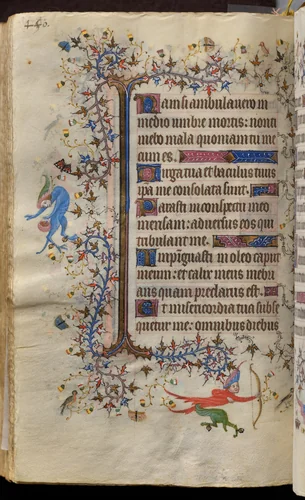 Nam si ambulavero in
medio umbre mortis: non ti
mebo mala quoniam tu me
cum es.
Virga tua et baculus tuus
ipa me consolata sunt.
Parasti in conspectu meo
mensam: adversus eos qui
tribulant me.
Impiguasti in oleo caput
meum: et calix meus inebri
ans quam preclarus est.
Et misericordia tua subse
quetur me: omnibus diebus